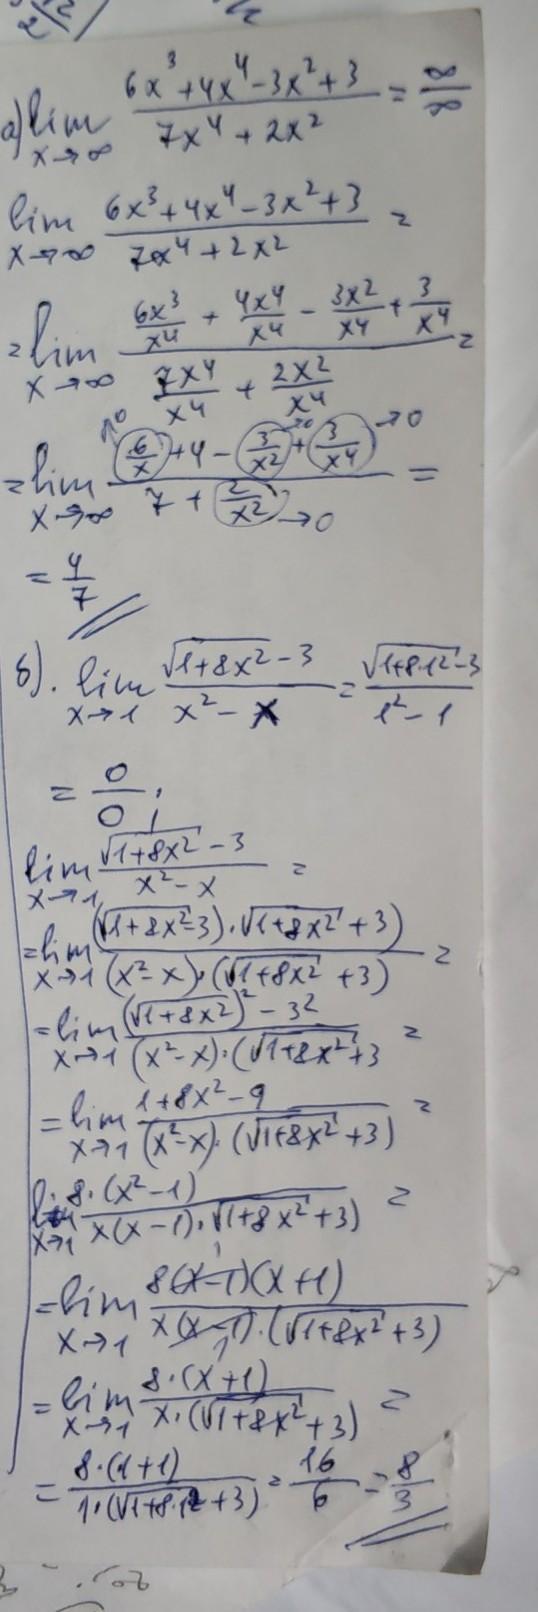 а) lim x→∞ (6x³+4x⁴-3x²+3)/(7x⁴+2x²) = ∞/∞
lim x→∞ (6x³+4x⁴-3x²+3)/(7x⁴+2x²) =
= lim x→∞ (6x³/x⁴ + 4x⁴/x⁴ - 3x²/x⁴ + 3/x⁴)/(7x⁴/x⁴ + 2x²/x⁴) =
= lim x→∞ (6/x →0 + 4 - 3/x² →0 + 3/x⁴ →0)/(7 + 2/x² →0) =
= 4/7
б). lim x→1 (√(1+8x²) - 3)/(x² - x) = (√(1+8·1²) - 3)/(1² - 1)
= 0/0 ;
lim x→1 (√(1+8x²) - 3)/(x² - x) =
= lim x→1 (√(1+8x²)-3)·√(1+8x²) + 3)/(x²-x)·(√(1+8x²) + 3) =
= lim x→1 ((√(1+8x²))² - 3²)/(x²-x)·(√(1+8x²) + 3 =
= lim x→1 (1+8x²-9)/(x²-x)·(√(1+8x²) + 3) =
lim x→1 8·(x²-1)/x(x-1)·√(1+8x²) + 3) =
= lim x→1 8(x-1)(x+1)/x(x-1)·(√(1+8x²) + 3)
= lim x→1 8·(x+1)/x·(√(1+8x²) + 3) =
= 8·(1+1)/1·(√(1+8·1²) + 3) = 16/6 = 8/3